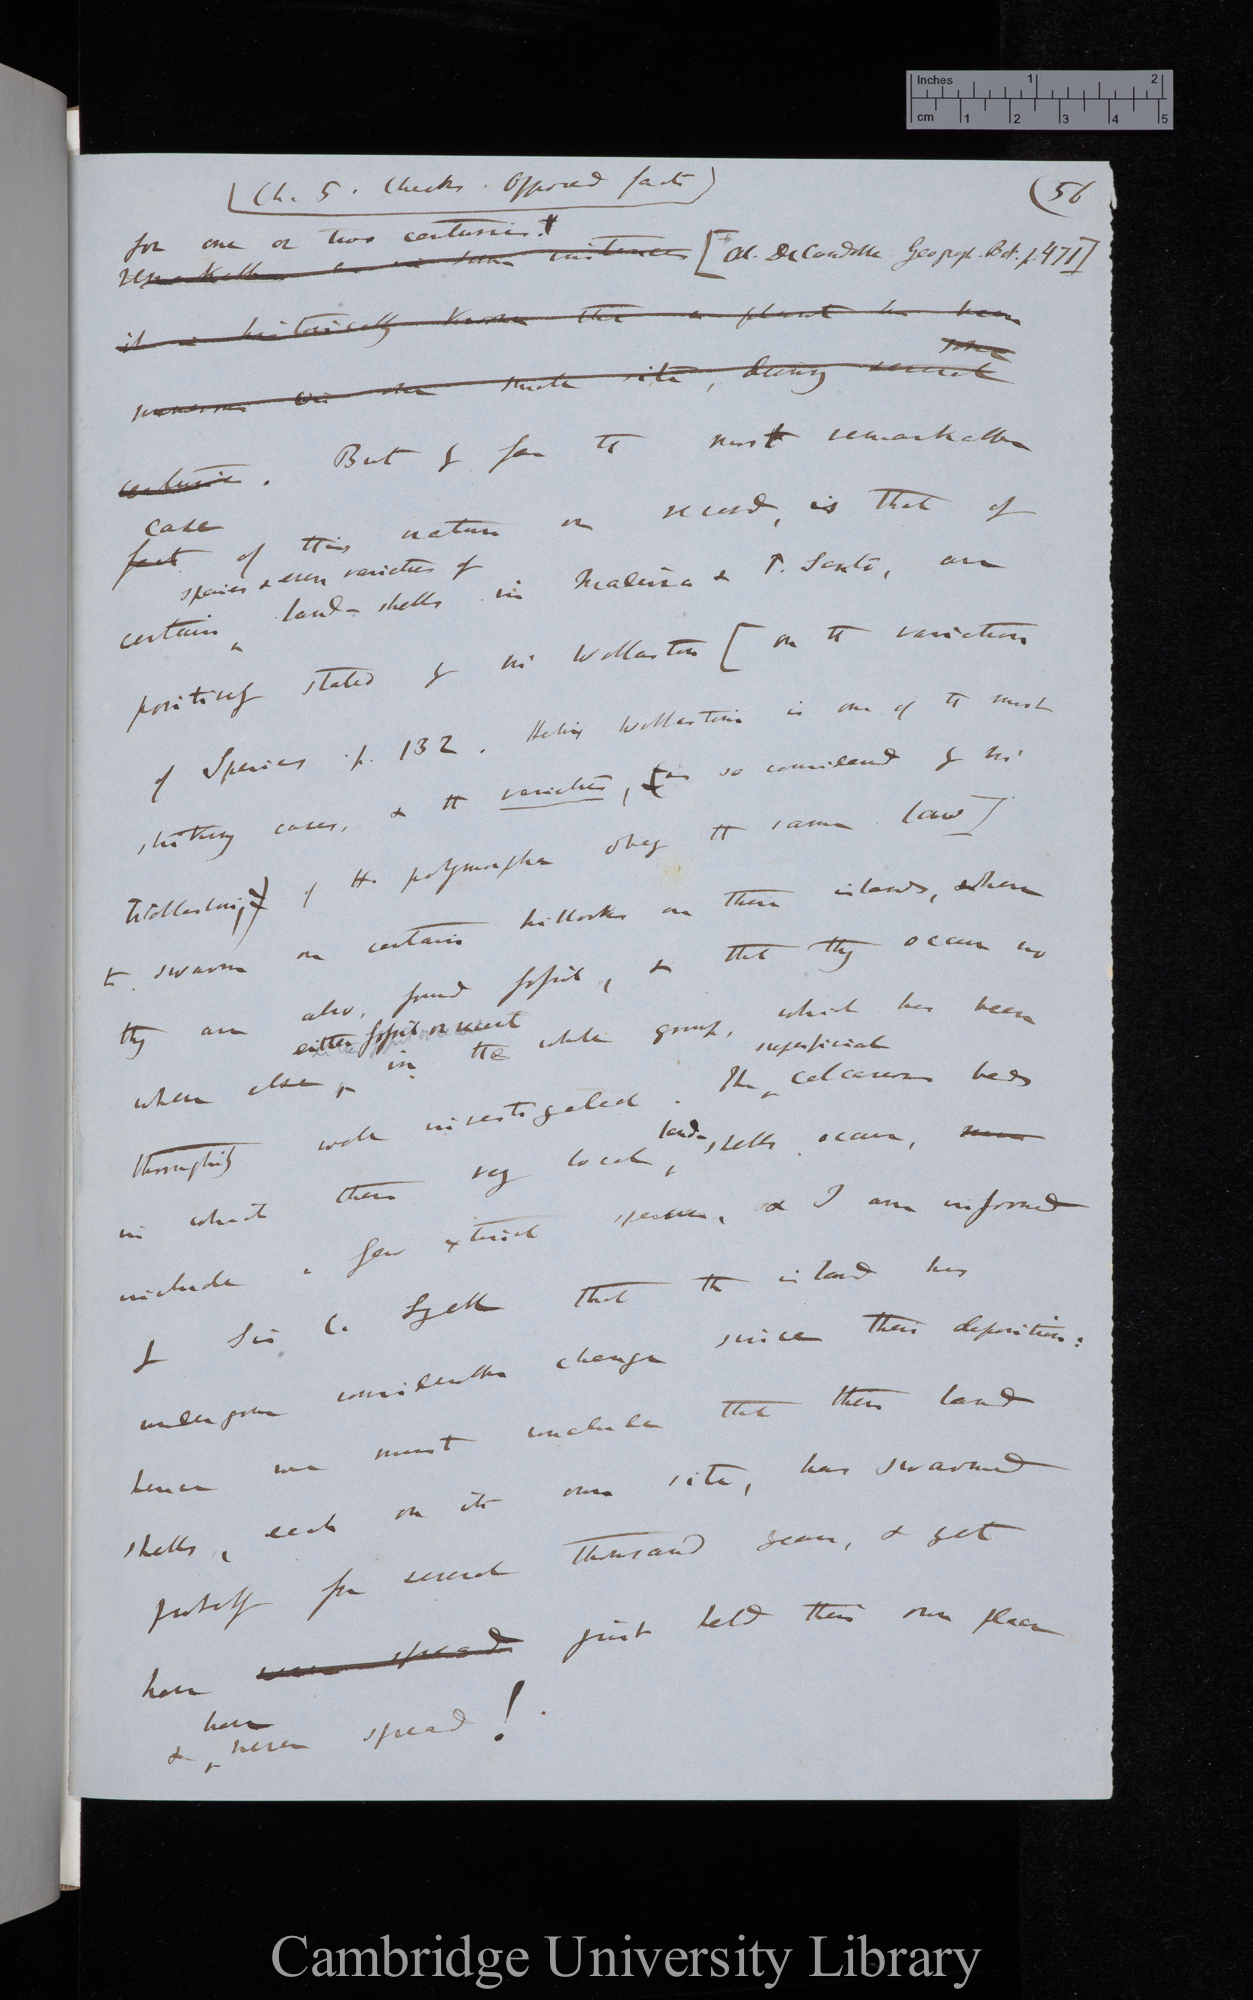 Inches 1 2
cm 1 2 3 4 5
(Ch. 5. Checks. Opposed facts)
(56
for one or two centuries.‡
remarkable as in some instances [‡ Al. DeCandolle Geograph. Bot. p. 471]
it is historically known that a plant has been
some
numerous in one small site, during several
centuries. But by far the most remarkable
case
fact of this nature on record, is that of
species & even varieties of
certain ^ land-shells in Madeira & P. Santo, are
positively stated by Mr Wollaston [on the variation
of Species p. 132. Helix Wollastoni is one of the most
striking cases, & the varieties, (as so considered by Mr
Wollaston,) of the polymorpha obey the same law]
to swarm on certain hillocks on these islands, where
they are also, found fossil, & that they occur no
either fossil or recent
where else, ^ in the whole group, which has been
superficial
thoroughily well investigated. The ^ calcareous beds
land-
in which these very local ^ shells occur,
include a few extinct species, & I am informed
by Sir C. Lyell that the island has
undergone considerable change since their deposition:
hence we must conclude that these land
shells, each on its own site, has swarmed
probably for several thousand years, & yet
have never spread just held their own place
have
& ^ never spread!
Cambridge University Library